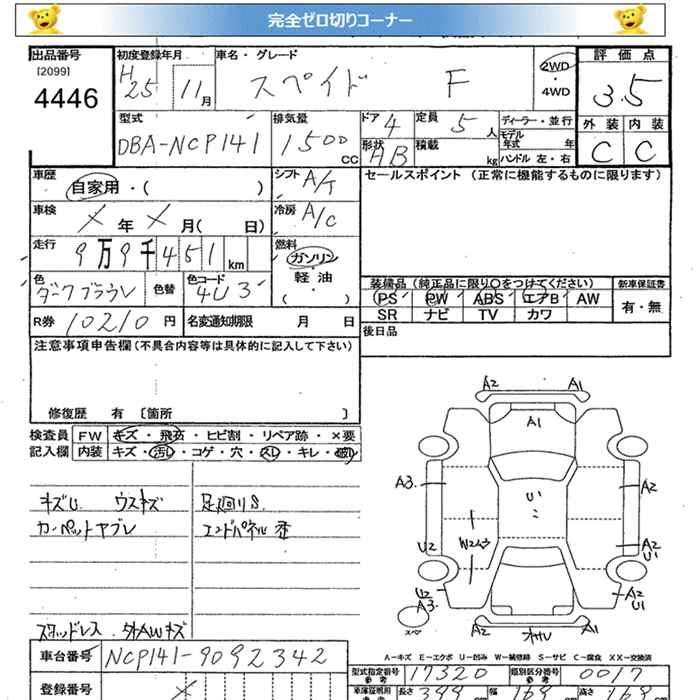 完全ゼロ切りコーナー
出品番号 初度登録年月 車名・グレード 評価点
[2099] H25 11月 スペイド F 2WD・4WD 3.5
4446
外装 内装
型式 排気量 ドア 定員 ディーラー・並行
DBA-NCP141 1500CC 4 5人 モデル年式 年 C C
形状 積載
AB kg ハンドル 左・右
車歴 シフト セールスポイント (正常に機能するものに限ります)
自家用・( ) A/T
車検 冷房
X年X月( 日) A/C
走行 燃料
9万9千451km ガソリン
軽油
( )
色 色替 色コード 装備品 (純正品に限り○をつけてください) 新車保証書
ダークブラウン 4U3 PS PW ABS エアB AW 有・無
SR ナビ TV カワ
R券 10210円 名変通知期限 月 日 後日品
注意事項申告欄 (不具合内容等は具体的に記入して下さい)
修復歴 有 [箇所 ]
検査員 FW キズ・飛石・ヒビ割・リペア跡・×要
記入欄 内装 キズ・汚レ・コゲ・穴・スレ・キレ・
A2 A1
A1
A3 A2
U2 W2ムラ A2
U1
U2 A2
A3 U1
スペア
A2 A2
キズU ウスキズ 足廻りS
カーペットヤブレ エンドパネル歪
スタッドレス 外AWキズ
A-キズ E-エクボ U-凹み W-補修跡 S-サビ C-腐食 XX-交換済
車台番号 NCP141-9092342
型式指定番号 参考 17320 類別区分番号 参考 0017
登録番号 X
車庫証明用 参考 長さ 399cm 幅 169cm 高さ 169cm